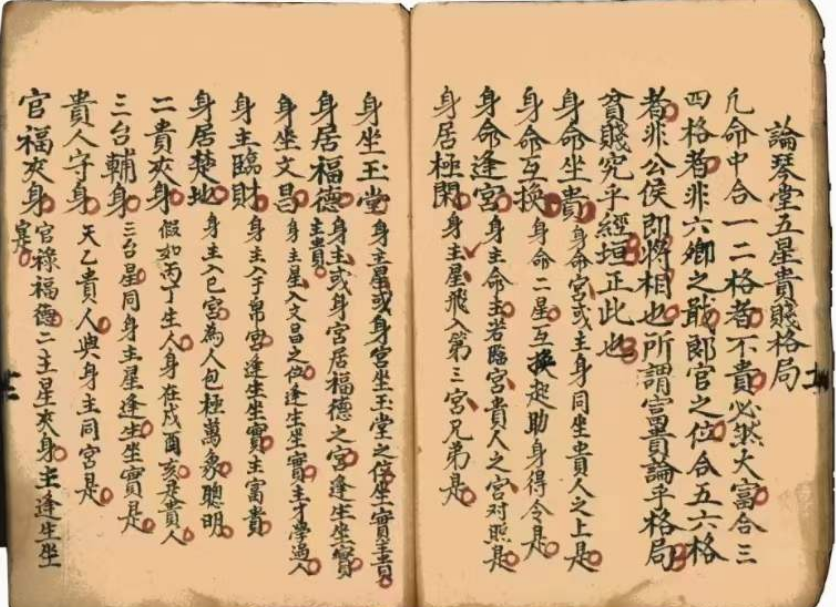 論琴堂五星貴賤格局
凢命中合一二格者不貴必然大富合三
四格者非六卿之戢郎官之位合五六格
者非公侯即將相也所謂富貴論乎格局
貧賤究乎經垣正此也
身命坐貴身命宮或主身同坐貴人之上是
身命互換身命二星互換起助身得令是
身命逢宮身主命主若臨宮貴人之宮对照是
身居極閑身主星飛入第三宮兄弟是
身坐玉堂身主星或身宮坐玉堂之位坐實主貴
身居福德身主或身宮居福德之宮逢生坐實主貴
身坐文昌身主星入文昌之位逢生坐實主才學過人
身主臨財身主入于帛宮逢生坐實主富貴
身居楚地身主入巳宮為人包極萬象聰明
二貴夾身假如丙丁生人身在戌酉亥是貴人
三台輔身三台星同身主星逢生坐實是
貴人守身天乙貴人與身主同宮是
官福夾身官祿福德二主星夾身主逢生坐實是